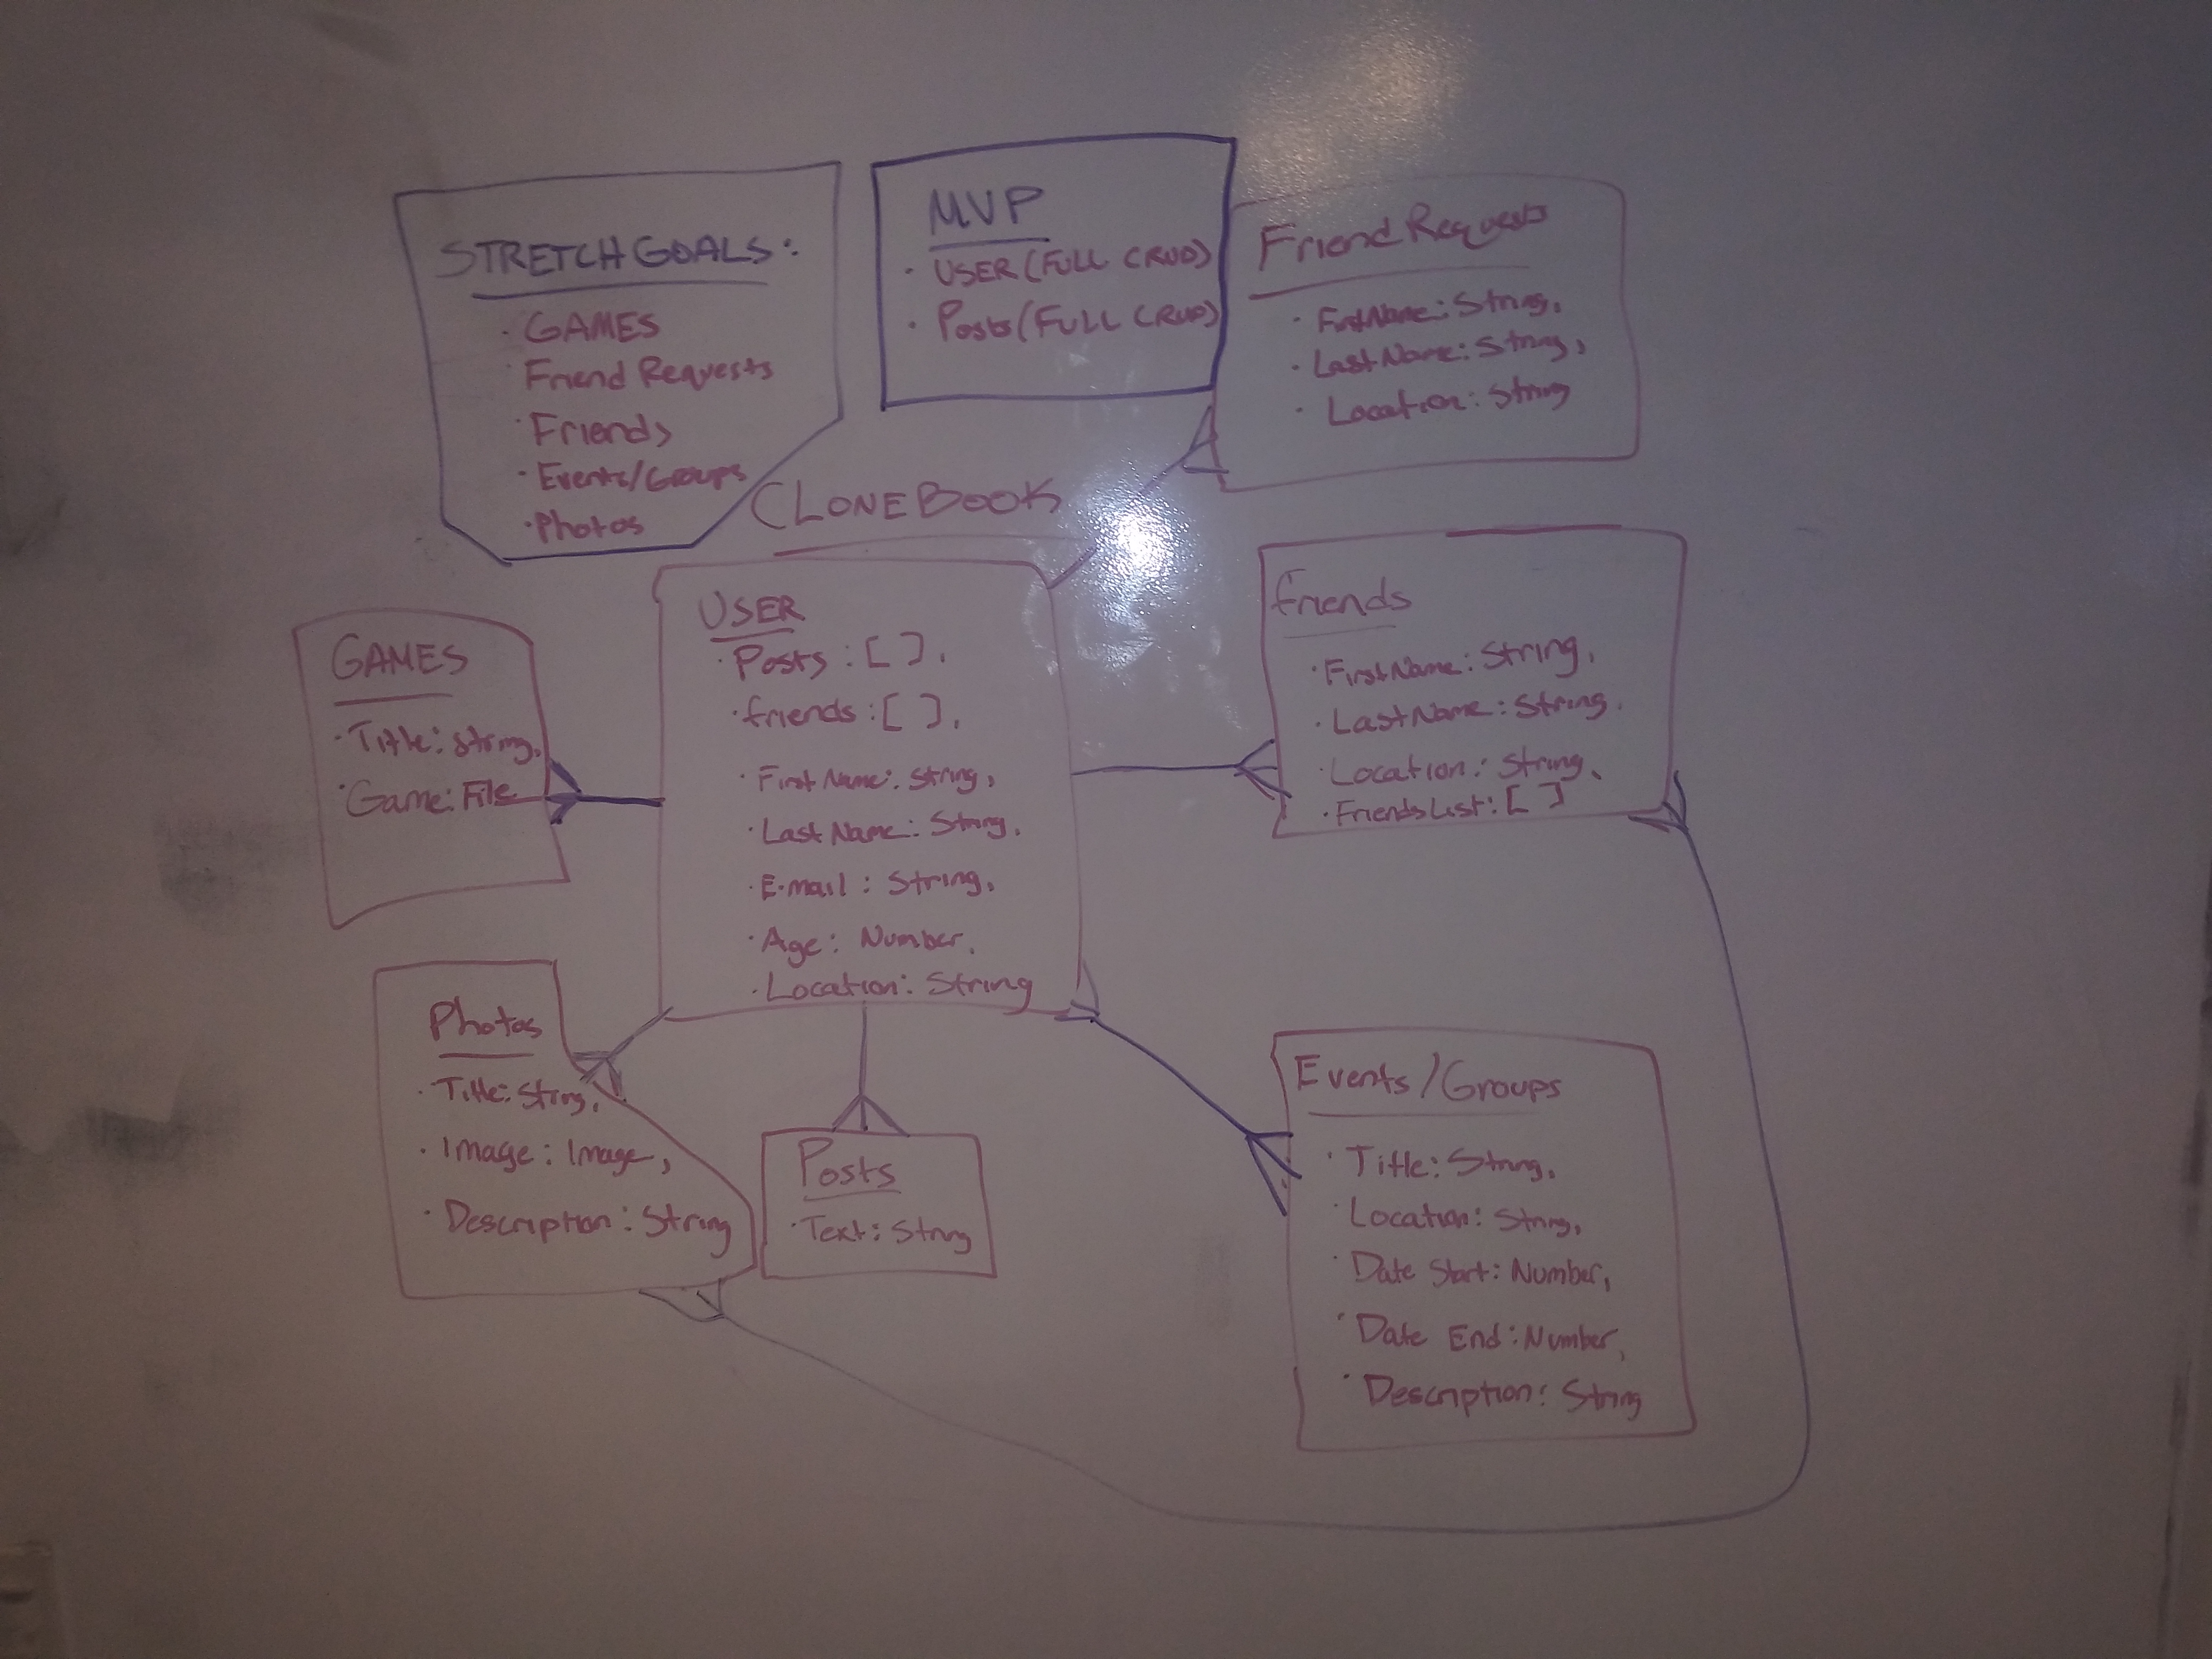 STRETCH GOALS:
· GAMES
· Friend Requests
· Friends
· Events/Groups
· Photos
MVP
· USER (FULL CRUD)
· Posts (FULL CRUD)
Friend Requests
· FirstName: String,
· LastName: String,
· Location: String
CLONEBOOK
GAMES
· Title: String,
· Game: File
USER
· Posts : [ ],
· friends : [ ],
· First Name: String,
· Last Name: String,
· E-mail : String,
· Age: Number,
· Location: String
friends
· FirstName: String,
· LastName: String,
· Location: String,
· FriendsList: [ ]
Photos
· Title: String,
· Image: Image,
· Description: String
Posts
· Text: String
Events/Groups
· Title: String,
· Location: String,
· Date Start: Number,
· Date End: Number,
· Description: String